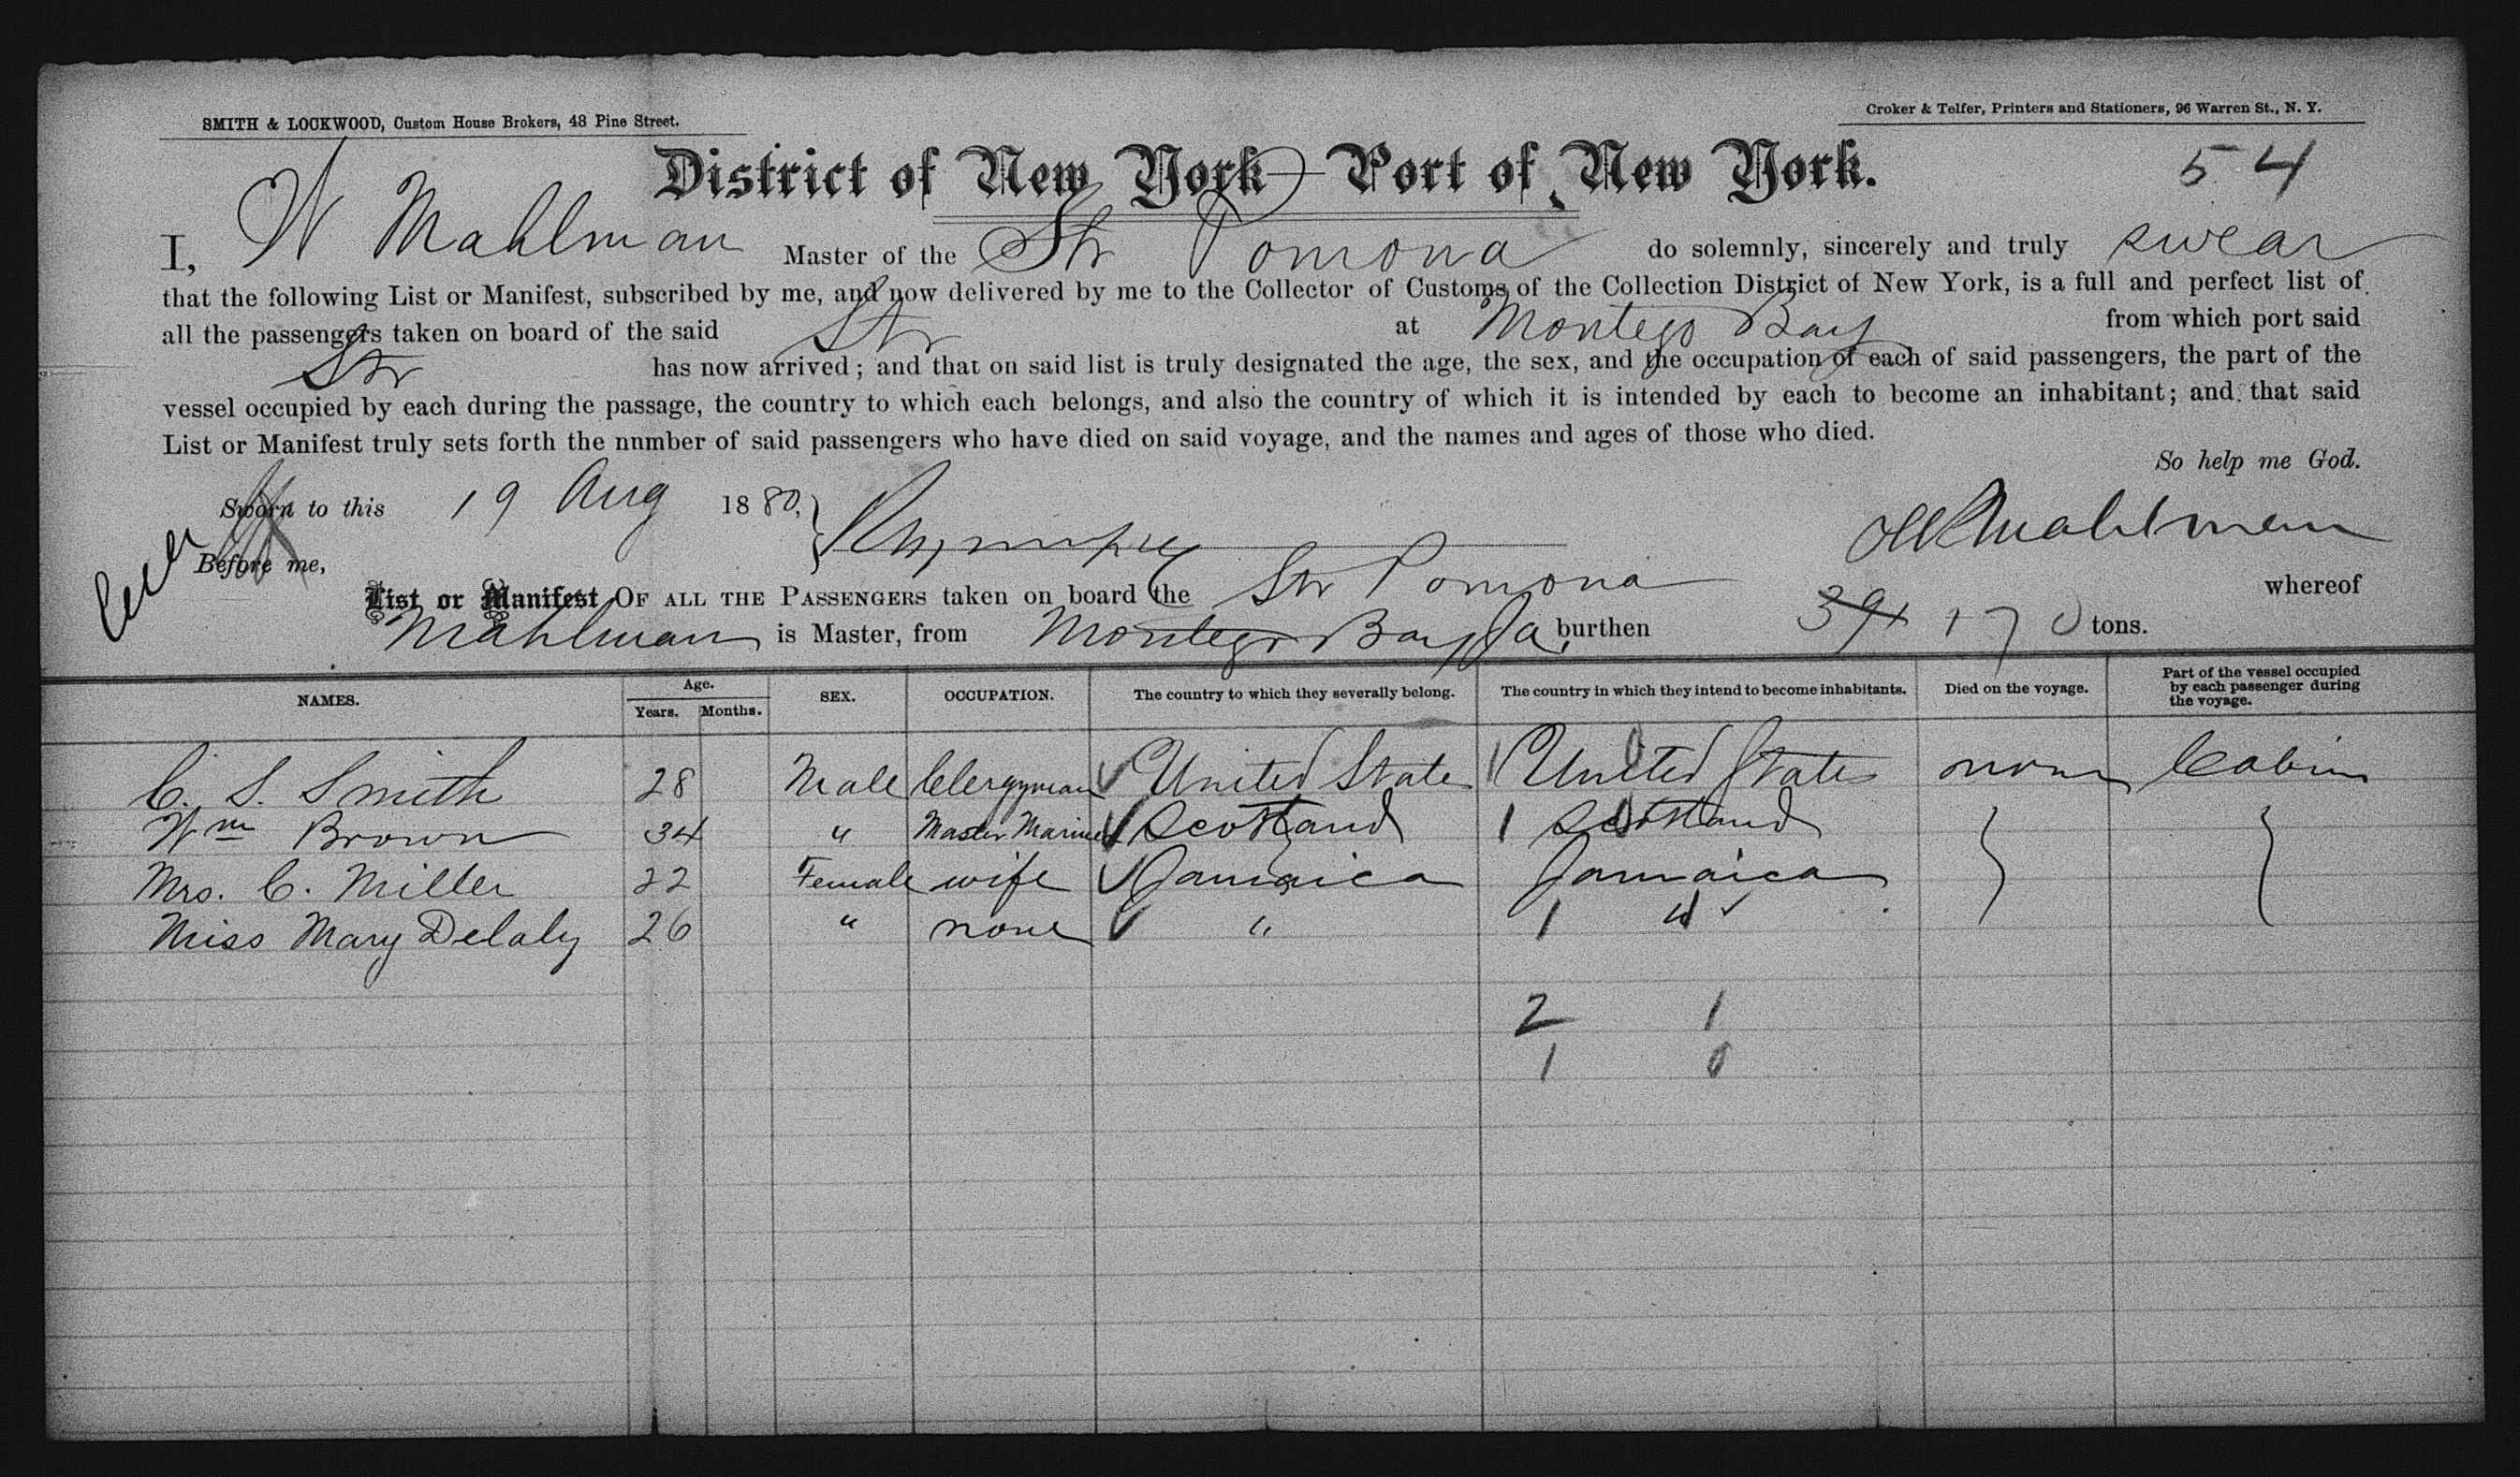 SMITH & LOCKWOOD, Custom House Brokers, 48 Pine Street.
Croker & Telfer, Printers and Stationers, 96 Warren St., N. Y.
District of New York—Port of New York.
54
I, W Mahlman Master of the Str Pomona do solemnly, sincerely and truly swear
that the following List or Manifest, subscribed by me, and now delivered by me to the Collector of Customs of the Collection District of New York, is a full and perfect list of
all the passengers taken on board of the said Str at Montego Bay from which port said
Str has now arrived; and that on said list is truly designated the age, the sex, and the occupation of each of said passengers, the part of the
vessel occupied by each during the passage, the country to which each belongs, and also the country of which it is intended by each to become an inhabitant; and that said
List or Manifest truly sets forth the nnmber of said passengers who have died on said voyage, and the names and ages of those who died.
So help me God.
Sworn to this 19 Aug 1880, Mahlman
Before me,
List or Manifest OF ALL THE PASSENGERS taken on board the Str Pomona whereof
Mahlman is Master, from Montego Bay Ja, burthen 170 tons.
NAMES. Age. Years. Months. SEX. OCCUPATION. The country to which they severally belong. The country in which they intend to become inhabitants. Died on the voyage. Part of the vessel occupied by each passenger during the voyage.
C. S. Smith 28 Male Clergyman United State United States none Cabin
Wm Brown 34 " Master Mariner Scotland 1 Scotland
Mrs. C. Miller 22 Female wife Jamaica Jamaica
Miss Mary Delaly 26 " none " 1 "
2 1
1 0